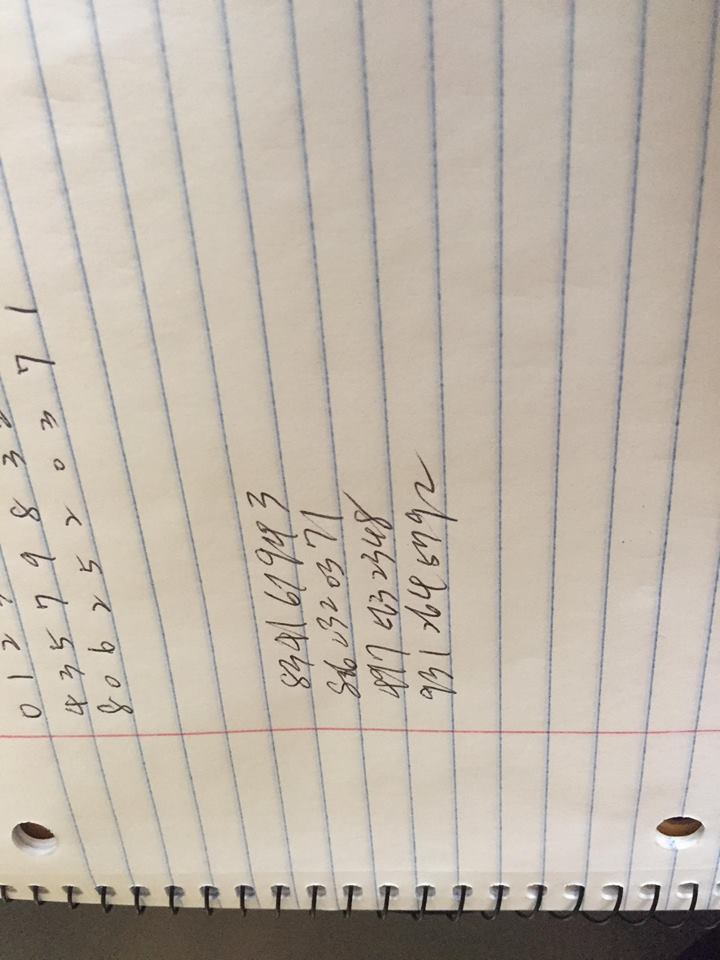 0 1 2
4 3 5 7 9 8 3
8 0 6 2 5 2 0 3 7 1
8341679493
862320371
497 5632348
931264 5792